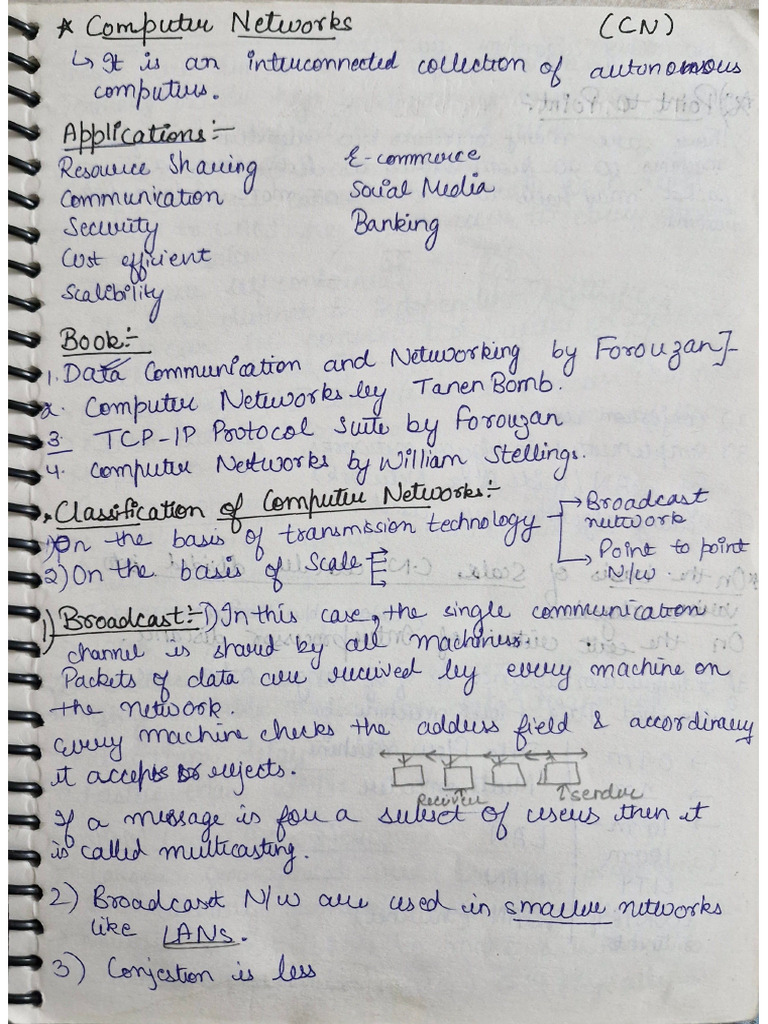 * Computer Networks (CN)
↳ It is an interconnected collection of autonomous
computers.
Applications:-
Resource Sharing
Communication
Security
Cost efficient
Scalibility
E-commerce
Social Media
Banking
Book:-
1. Data Communication and Networking by Forouzan]-
2. Computer Networks by Tanen Bomb.
3. TCP-IP Protocol Suite by Forouzan
4. Computer Networks by William Stellings.
* Classification of Computer Networks:-
1) On the basis of transmission technology → Broadcast
network
→ Point to point
N/w.
2) On the basis of Scale
1) Broadcast:- 1) In this case, the single communication
channel is shared by all machines.
Packets of data are received by every machine on
the network.
every machine checks the address field & accordingly
it accepts or rejects.
Receiver ↑sender
If a message is for a subset of users then it
is called multicasting.
2) Broadcast N/w are used in smaller networks
like LANs.
3) Conjestion is less